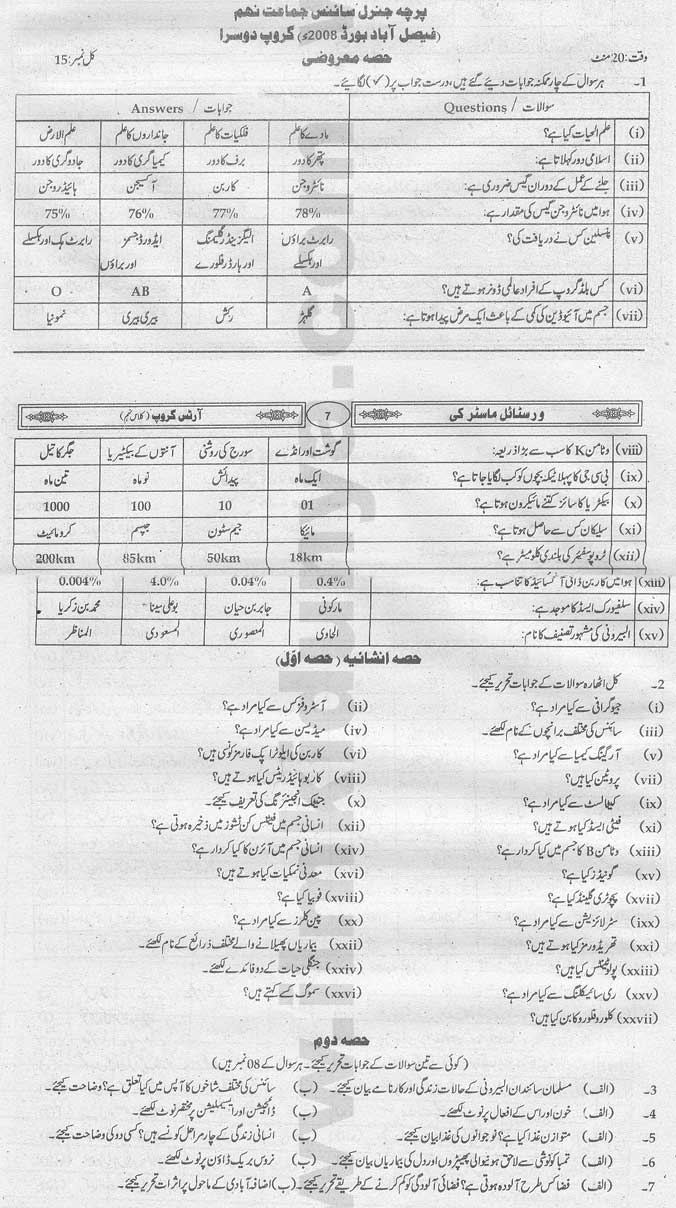 پرچہ جنرل سائنس جماعت نہم
(فیصل آباد بورڈ 2008ء) گروپ دوسرا
وقت: 20 منٹ حصہ معروضی کل نمبر: 15
1۔ ہر سوال کے چار ممکنہ جوابات دیئے گئے ہیں، درست جواب پر (✓) لگائیے۔
سوالات / Questions جوابات / Answers
(i) علم الحیات کیا ہے؟ مادے کا علم فلکیات کا علم جانداروں کا علم علم الارض
(ii) اسلامی دور کہلاتا ہے: پتھر کا دور برف کا دور کیمیا گری کا دور جادوگری کا دور
(iii) جلنے کے عمل کے دوران گیس ضروری ہے: نائٹروجن کاربن آکسیجن ہائیڈروجن
(iv) ہوا میں نائٹروجن گیس کی مقدار ہے: 78% 77% 76% 75%
(v) پنسلین کس نے دریافت کی؟ رابرٹ براؤن اور ہکسلے الیگزینڈر فلیمنگ اور ہارڈر فلورے ایڈورڈ جسنر اور براؤن رابرٹ ہک اور ہکسلے
(vi) کس بلڈ گروپ کے افراد عالمی ڈونر ہوتے ہیں؟ A B AB O
(vii) جسم میں آئیوڈین کی کمی کے باعث ایک مرض پیدا ہوتا ہے: گلہڑ رکٹس بیری بیری نمونیا
ورسٹائل ماسٹر کی 7 آرٹس گروپ (کلاس نہم)
(viii) وٹامن K کا سب سے بڑا ذریعہ: گوشت اور انڈے سورج کی روشنی آنتوں کے بیکٹیریا جگر کا تیل
(ix) بی سی جی کا پہلا ٹیکہ بچوں کو کب لگایا جاتا ہے؟ ایک ماہ پیدائش نو ماہ تین ماہ
(x) بیکٹریا کا سائز کتنے مائیکرون ہوتا ہے؟ 01 10 100 1000
(xi) سلیکان کس سے حاصل ہوتا ہے؟ مائیکا جیم سٹون جپسم کرومائیٹ
(xii) ٹروپوسفیئر کی بلندی کلومیٹر ہے؟ 18km 50km 85km 200km
(xiii) ہوا میں کاربن ڈائی آکسائیڈ کا تناسب ہے: 0.4% 0.04% 4.0% 0.004%
(xiv) سلفیورک ایسڈ کا موجد ہے: مارکونی جابر بن حیان بوعلی سینا محمد بن زکریا
(xv) البیرونی کی مشہور تصنیف کا نام: الحاوی المنصوری المسعودی المناظر
حصہ انشائیہ (حصہ اوّل)
2۔ کل اٹھارہ سوالات کے جوابات تحریر کیجئے۔
(i) جیوگرافی سے کیا مراد ہے؟ (ii) آسٹروفزکس سے کیا مراد ہے؟
(iii) سائنس کی مختلف برانچوں کے نام لکھئے۔ (iv) میڈیسن سے کیا مراد ہے؟
(v) آرگینک کیمیا سے کیا مراد ہے؟ (vi) کاربن کی ایلوٹراپک فارمز کونسی ہیں؟
(vii) پروٹین کیا ہیں؟ (viii) کاربوہائیڈریٹس کیا ہوتے ہیں؟
(ix) کیٹالسٹ سے کیا مراد ہے؟ (x) جنیٹک انجینئرنگ کی تعریف کیجئے۔
(xi) فیٹی ایسڈ کیا ہوتے ہیں؟ (xii) انسانی جسم میں فیٹس کن ٹشوز میں ذخیرہ ہوتی ہے؟
(xiii) وٹامن B کا جسم میں کیا کردار ہے؟ (xiv) انسانی جسم میں آئرن کا کیا کردار ہے؟
(xv) گونیڈز کیا ہے؟ (xvi) معدنی نمکیات کیا ہوتے ہیں؟
(xvii) پچوٹری گلینڈ کیا ہے؟ (xviii) فوبیا کیا ہے؟
(ixx) سٹرلائزیشن سے کیا مراد ہے؟ (xx) پین کلرز سے کیا مراد ہے؟
(xxi) تھریڈ ورمز کیا ہوتے ہیں؟ (xxii) بیماریاں پھیلانے والے مختلف ذرائع کے نام لکھئے۔
(xxiii) پولوٹینٹس کیا ہیں؟ (xxiv) جنگلی حیات کے دو فائدے لکھئے۔
(xxv) ری سائیکلنگ سے کیا مراد ہے؟ (xxvi) سموگ کسے کہتے ہیں؟
(xxvii) کلوروفلوروکاربن کیا ہیں؟
حصہ دوم
(کوئی سے تین سوالات کے جوابات تحریر کیجئے۔ ہر سوال کے 08 نمبر ہیں)
3۔ (الف) مسلمان سائنسدان البیرونی کے حالات زندگی اور کارنامے بیان کیجئے۔ (ب) سائنس کی مختلف شاخوں کا آپس میں کیا تعلق ہے؟ وضاحت کیجئے۔
4۔ (الف) خون اور اس کے افعال پر نوٹ لکھئے۔ (ب) ڈائجیشن اور ایسیمیلیشن پر مختصر نوٹ لکھئے۔
5۔ (الف) متوازن غذا کیا ہے؟ نوجوانوں کی غذا بیان کیجئے۔ (ب) انسانی زندگی کے چار مراحل کونسے ہیں؟ کسی دو کی وضاحت کیجئے۔
6۔ (الف) تمباکو نوشی سے لاحق ہونیوالی پھیپھڑوں اور دل کی بیماریاں بیان کیجئے۔ (ب) نروس بریک ڈاؤن پر نوٹ لکھئے۔
7۔ (الف) فضا کس طرح آلودہ ہوتی ہے؟ فضائی آلودگی کو کم کرنے کے طریقے تحریر کیجئے۔ (ب) اضافہ آبادی کے ماحول پر اثرات تحریر کیجئے۔